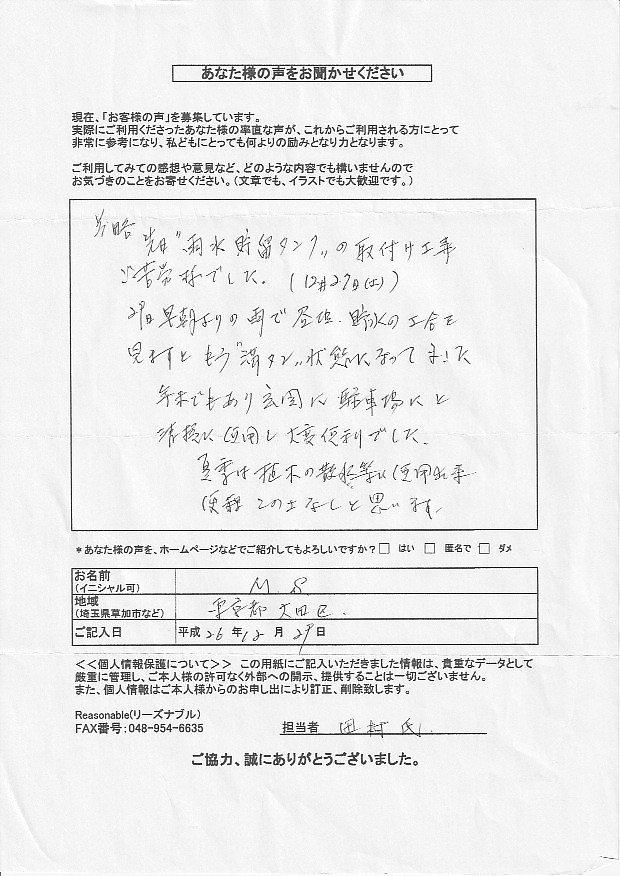 あなた様の声をお聞かせください
現在、「お客様の声」を募集しています。
実際にご利用くださったあなた様の率直な声が、これからご利用される方にとって
非常に参考になり、私どもにとっても何よりの励みとなり力となります。
ご利用してみての感想や意見など、どのような内容でも構いませんので
お気づきのことをお寄せください。(文章でも、イラストでも大歓迎です。)
前略
先日"雨水貯留タンク"の取付け工事
ご苦労様でした。(12月27日(土))
29日早朝よりの雨で昼頃、貯水の工合を
見ますともう"満タン"状態になってました
年末でもあり玄関に駐車場にと
清掃に使用し大変便利でした。
夏季は植木の散水等に使用出来
便利この上なしと思います。
*あなた様の声を、ホームページなどでご紹介してもよろしいですか?□ はい □ 匿名で □ ダメ
お名前
(イニシャル可) M S
地域
(埼玉県草加市など) 東京都 大田区.
ご記入日 平成 26 年 12 月 29 日
<<個人情報保護について>> この用紙にご記入いただきました情報は、貴重なデータとして
厳重に管理し、ご本人様の許可なく外部への開示、提供することは一切ございません。
また、個人情報はご本人様からのお申し出により訂正、削除致します。
Reasonable(リーズナブル)
FAX番号:048-954-6635 担当者 田村 氏
ご協力、誠にありがとうございました。